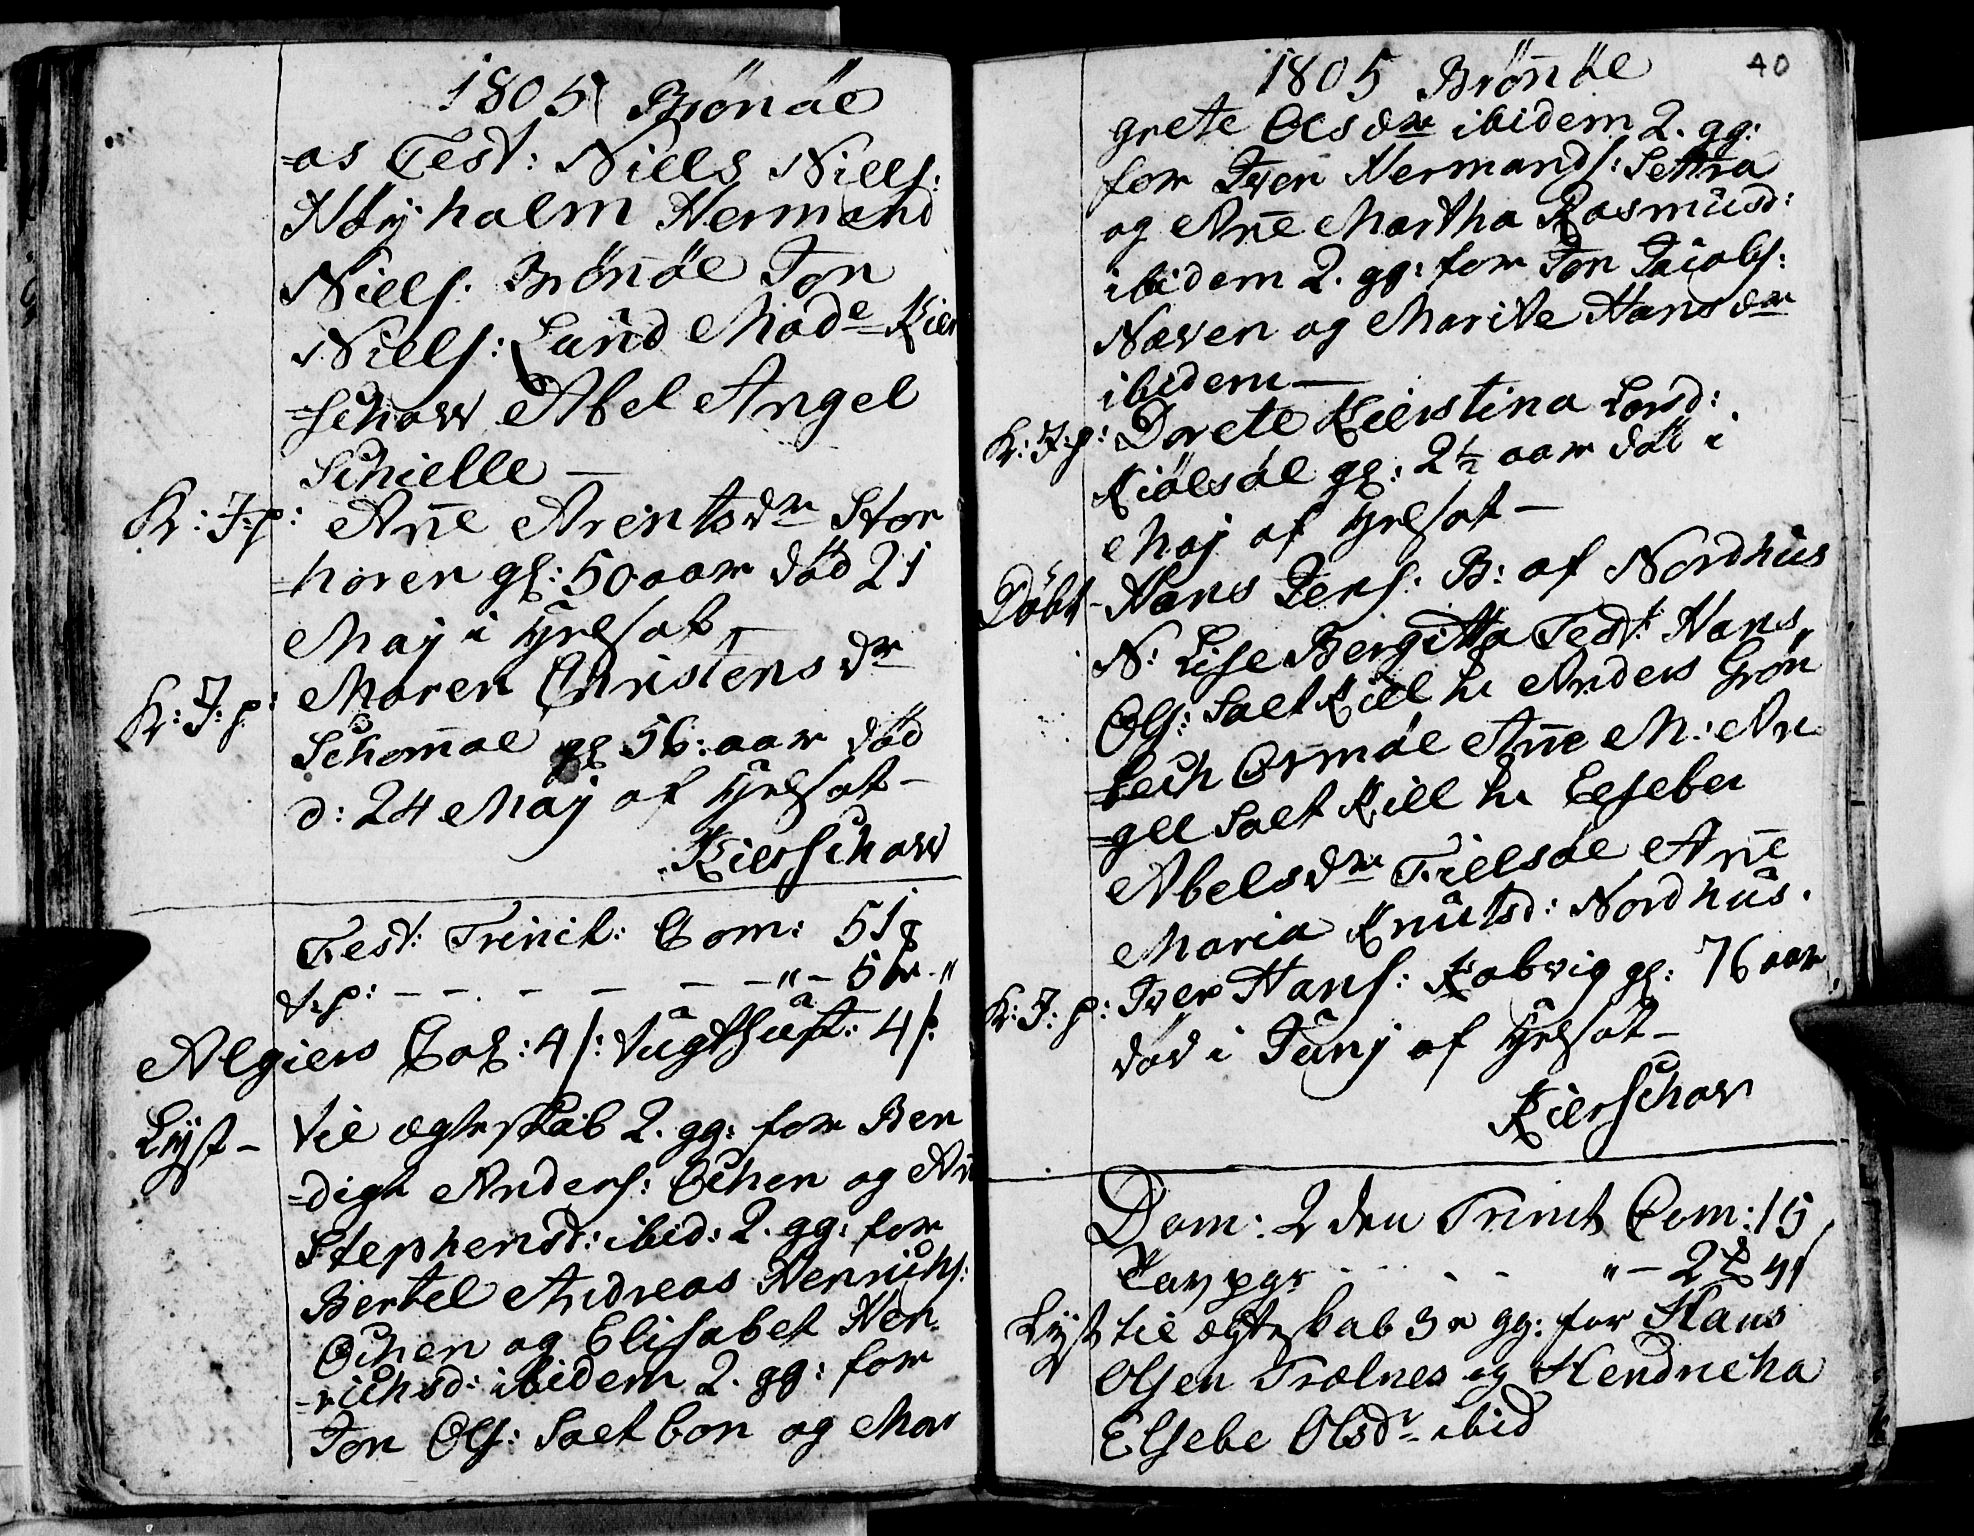 1805 Brönöe
=as Test: Niels Niels:
Höyholm Hermand
Niels: Brönöe Jon
Niels: Lund Made Kier
=schow Abel Angel
Schielle —
Kr: J: p: Ane Arentsdr Stor
=horen gl: 50 aar död 21
Maj i
Kr: J: p: Maren Christensdr
Schomoe gl 56: aar död
d: 24 Maj af
Kierschow
Fest: Trinit: Com: 51
t: p: — — — — — " —
Algiers Col: 4 s: tugthust: 4 s:
Lyst — til ægteskab 2. gg: for Ben
=digt Anders: Ochen og An
Stephensd: ibid: 2. gg: for
Bertel Andreas Henrichs:
Ochen og Elisabet Hen
=richsd: ibidem 2. gg: for
Jon Ols: Saltbon og Mar
1805 Brönöe 40
grete Olsdr ibidem 2. gg:
for Iver Hermands: Settra
og Ane Martha Rasmusd:
ibidem 2. gg: for Jon Jacobs:
Næven og Marite Hansdr
ibidem —
Kr: J: p: Dorete Kierstina Larsd:
Kiölsöe gl: 2 1/2 aar död i
Maj af
Döbt — Hans Jens: B: af Nordhus
N: Lise Bergitta Test: Hans
Ols: Salt Anders Grön
=bech Ormöe Ane M: An
=gel Salt Elsebe
Abelsdr Tielsöe Ane
Maria Knutsd: Nordhus.
Kr: J: p: Iver Hans: Kobvig gl: 76 aar
död i Junj af
Kierschow
Dom: 2den Trinit Com: 15
" — 2 4 s
Lyst til ægteskab 3e gg: for Hans
Olsen Trælnes og Hendricha
Elsebe Olsdr ibid